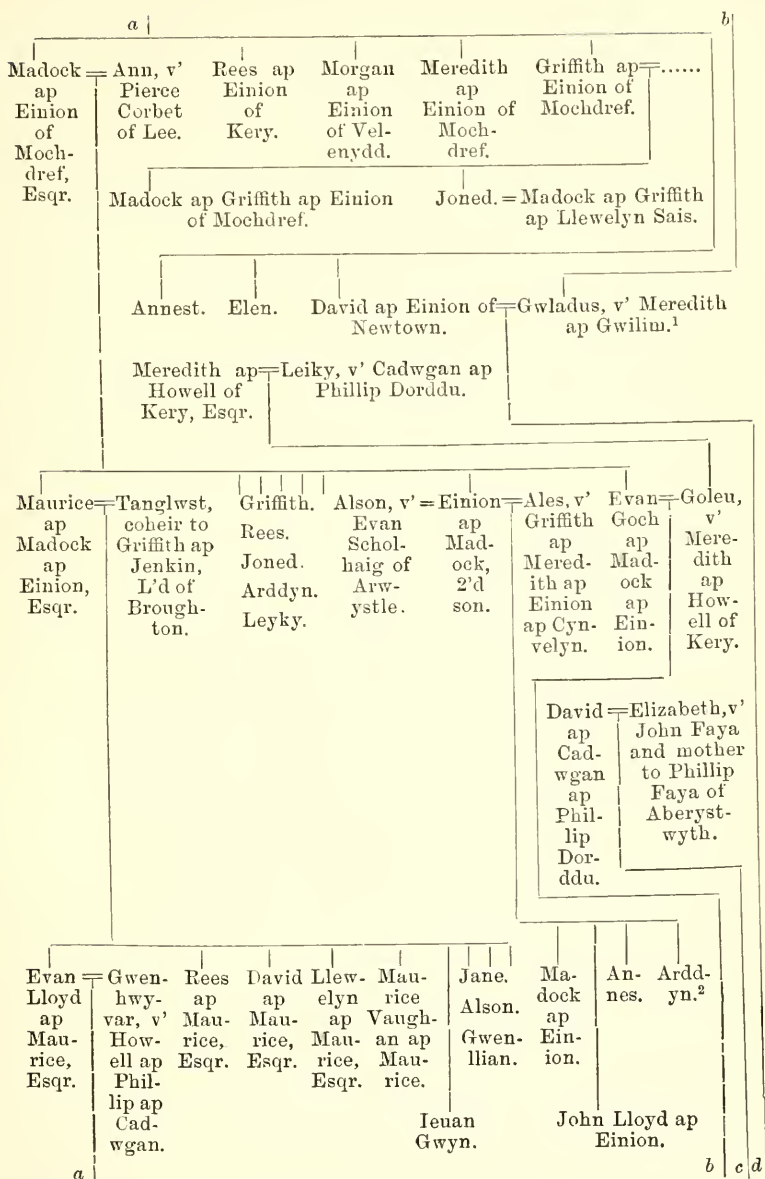 a
b
Madock =
ap
Einion
of
Moch-
dref,
Esqr.
Ann, v'
Pierce
Corbet
of Lee.
Rees ap
Einion
of
Kery.
Morgan
ap
Einion
of Vel-
enydd.
Meredith
ap
Einion of
Moch-
dref.
Griffith ap=......
Einion of
Mochdref.
Madock ap Griffith ap Einion
of Mochdref.
Joned. = Madock ap Griffith
ap Llewelyn Sais.
Annest.
Elen.
David ap Einion of=
Newtown.
Gwladus, v' Meredith
ap Gwilim.¹
Meredith ap=
Howell of
Kery, Esqr.
Leiky, v' Cadwgan ap
Phillip Dorddu.
Maurice=
ap
Madock
ap
Einion,
Esqr.
Tanglwst,
coheir to
Griffith ap
Jenkin,
L'd of
Brough-
ton.
Griffith.
Rees.
Joned.
Arddyn.
Leyky.
Alson, v' =
Evan
Schol-
haig of
Arw-
ystle.
Einion=
ap
Mad-
ock,
2'd
son.
Ales, v'
Griffith
ap
Mered-
ith ap
Einion
ap Cyn-
velyn.
Evan=
Goch
ap
Mad-
ock
ap
Ein-
ion.
Goleu,
v'
Mere-
dith
ap
How-
ell of
Kery.
David =
ap
Cad-
wgan
ap
Phil-
lip
Dor-
ddu.
Elizabeth, v'
John Faya
and mother
to Phillip
Faya of
Aberyst-
wyth.
Evan =
Lloyd
ap
Mau-
rice,
Esqr.
Gwen-
hwy-
var, v'
How-
ell ap
Phil-
lip ap
Cad-
wgan.
Rees
ap
Mau-
rice,
Esqr.
David
ap
Mau-
rice,
Esqr.
Llew-
elyn
ap
Mau-
rice,
Esqr.
Mau-
rice
Vaugh-
an ap
Mau-
rice.
Ieuan
Gwyn.
Jane.
Alson.
Gwen-
llian.
Ma-
dock
ap
Ein-
ion.
John Lloyd ap
Einion.
An-
nes.
Ardd-
yn.²
a
b
c
d